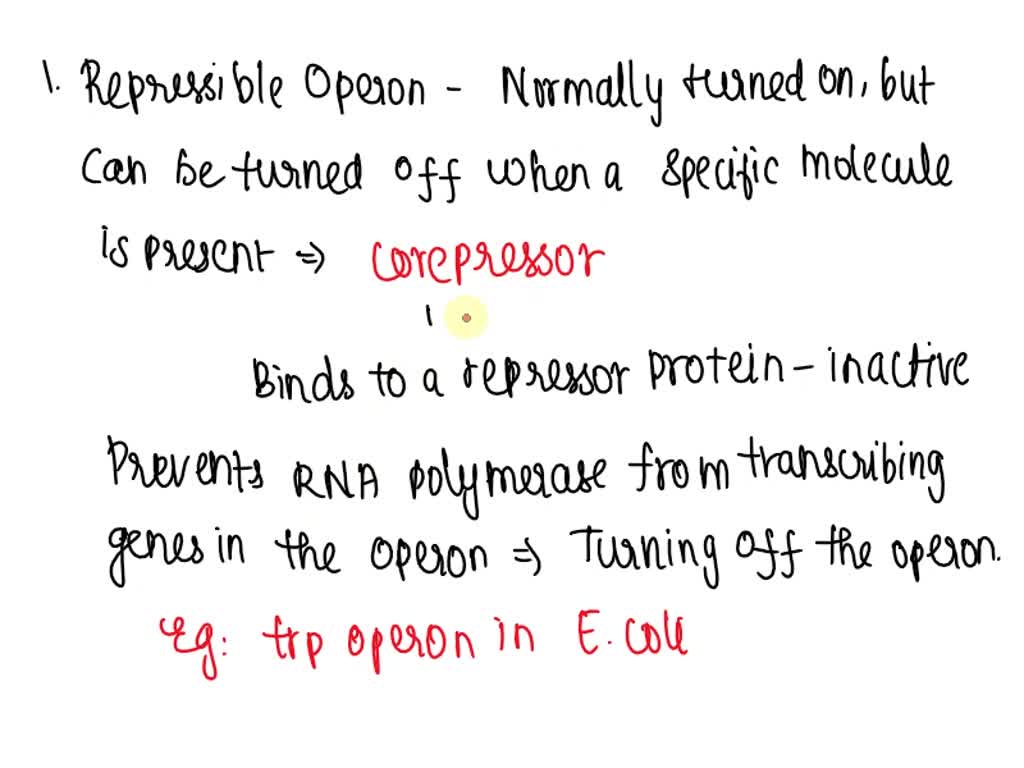 1. Repressible Operon - Normally turned on, but
can be turned off when a specific molecule
is present ⇒ corepressor
Binds to a repressor protein - inactive
Prevents RNA polymerase from transcribing
genes in the operon ⇒ Turning off the operon.
Eg: trp operon in E. coli